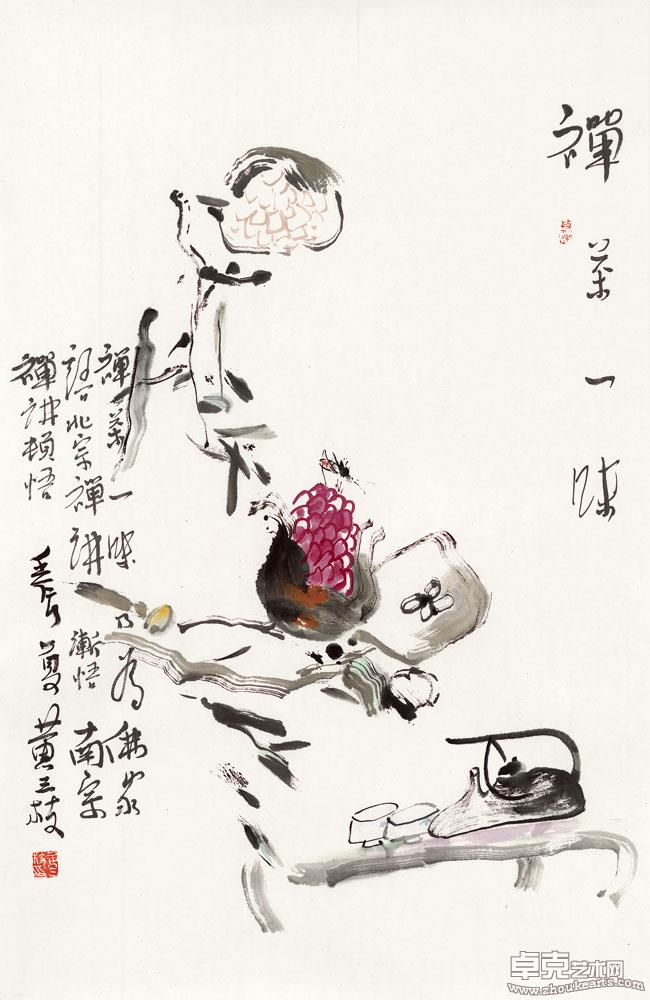 禪茶一味
禪茶一味乃為佛家
語北宗禪講漸悟南宗
禪講頓悟 壬辰夏黃三枝
卓克艺术网
www.zhoukearts.com